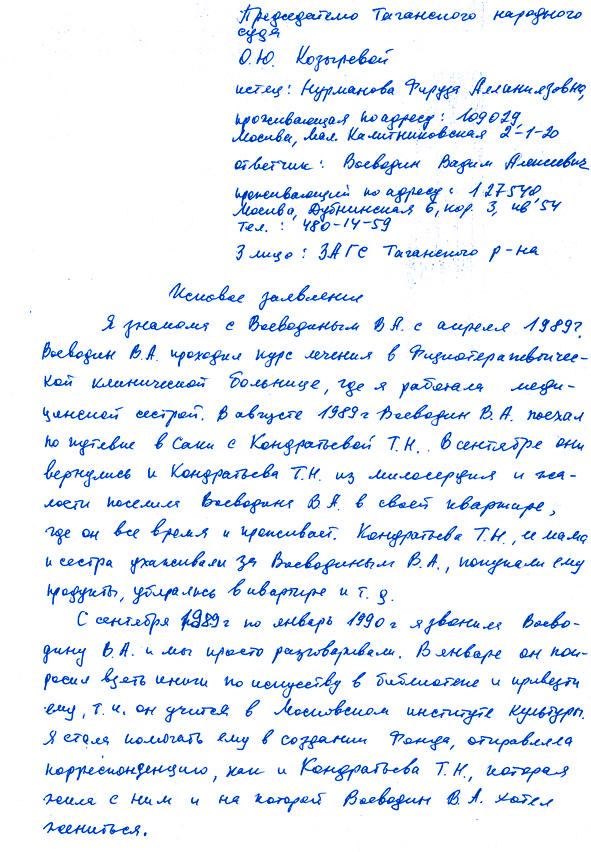 Председателю Таганского народного
суда
О.Ю. Козыревой
истец: Нурманова Фируза Алланиязовна,
проживающая по адресу: 109029,
Москва, Мал. Калитниковская 2-1-20
ответчик: Воеводин Вадим Алексеевич
проживающий по адресу: 127540,
Москва, Дубнинская 6, кор. 3, кв 54
Тел.: 480-14-59
3 лицо: ЗАГС Таганского р-на
Исковое заявление
Я знакома с Воеводиным В.А. с апреля 1989г.
Воеводин В.А. проходил курс лечения в Физиотерапевтичес-
кой клинической больнице, где я работала меди-
цинской сестрой. В августе 1989г Воеводин В.А. поехал
по путевке в Саки с Кондратьевой Т.Н. В сентябре они
вернулись и Кондратьева Т.Н. из милосердия и жа-
лости поселила Воеводина В.А. в своей квартире,
где он все время и проживает. Кондратьева Т.Н., ее мама
и сестра ухаживали за Воеводиным В.А., покупали ему
продукты, убирались в квартире и т.д.
С сентября 1989г по январь 1990г я звонила Воево-
дину В.А. и мы просто разговаривали. В январе он поп-
росил взять книги по искусству в библиотеке и привезти
ему, т.к. он учится в Московском институте культуры.
Я стала помогать ему в создании Фонда, отправляла
корреспонденцию, как и Кондратьева Т.Н., которая
жила с ним и на которой Воеводин В.А. хотел
жениться.